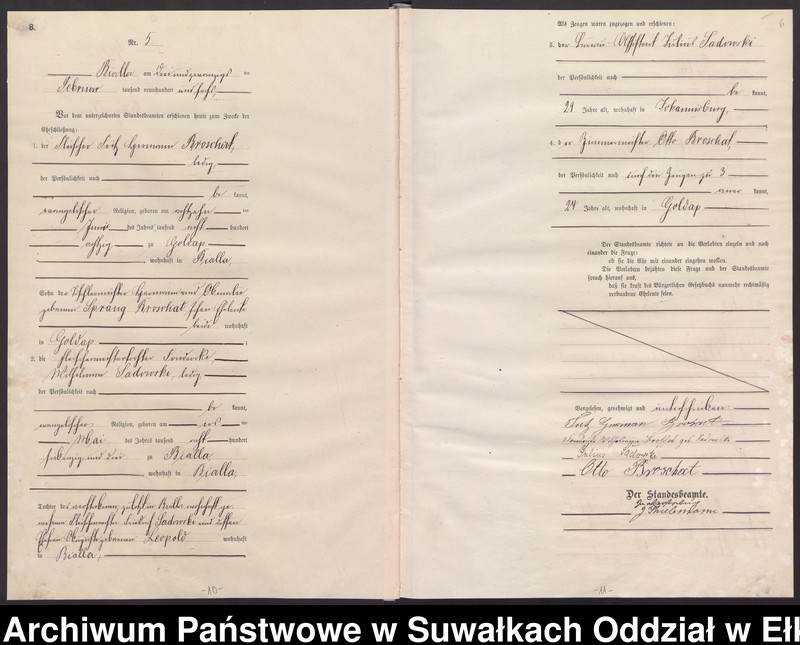 B.
Nr. 5
Bialla am dreiundzwanzigsten
Februar tausend neunhundert und sechs
Vor dem unterzeichneten Standesbeamten erschienen heute zum Zwecke der
Eheschließung:
1. der Fleischer Fritz Hermann Broschat,
ledig
der Persönlichkeit nach
be kannt,
evangelischer Religion, geboren am achtzehn ten
Juni des Jahres tausend acht hundert
achtzig zu Goldap
, wohnhaft in Bialla,
Sohn der Hermann und
geborenen Broschat schen Eheleute
beide wohnhaft
in Goldap ;
2. die Fleischermeistertochter
Wilhelmine Sadowski, ledig
der Persönlichkeit nach
be kannt,
evangelischer Religion, geboren am ten
Mai des Jahres tausend acht hundert
siebenzig und drei zu Bialla
, wohnhaft in Bialla,
Tochter des verstorbenen, zuletzt in Bialla wohnhaft ge
wesenen Fleischermeister Friedrich Sadowski und dessen
Ehefrau Auguste geborenen Leopold wohnhaft
in Bialla,
-10-
6
Als Zeugen waren zugezogen und erschienen:
3. der Bureau-Assistent Julius Sadowski
der Persönlichkeit nach
be kannt,
29 Jahre alt, wohnhaft in Johannisburg,
4. der Zimmermeister Otto Broschat,
der Persönlichkeit nach durch den Zeugen zu 3
aner kannt,
24 Jahre alt, wohnhaft in Goldap
Der Standesbeamte richtete an die Verlobten einzeln und nach
einander die Frage:
ob sie die Ehe mit einander eingehen wollen.
Die Verlobten bejahten diese Frage und der Standesbeamte
sprach hierauf aus,
daß sie kraft des Bürgerlichen Gesetzbuchs nunmehr rechtmäßig
verbundene Eheleute seien.
Vorgelesen, genehmigt und unterschrieben
Fritz Herman Broschat
Wilhelmine Broschat geb Sadowski
Julius Sadowski
Otto Broschat
Der Standesbeamte.
In Vertretung
-11-
Archiwum Państwowe w Suwałkach Oddział w Ełk